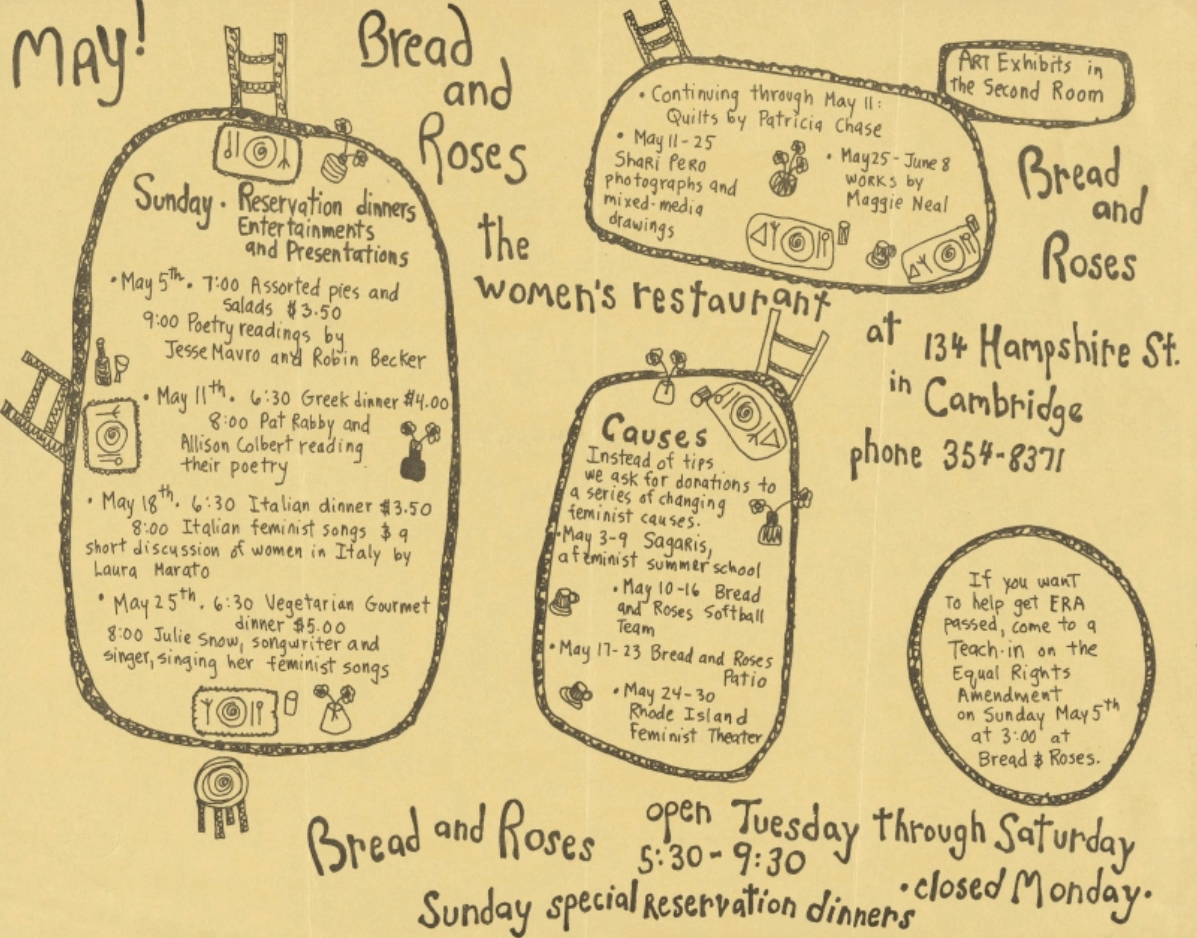 MAY!
Bread
and
Roses
the
women's restaurant
Sunday · Reservation dinners
Entertainments
and Presentations
• May 5th. 7:00 Assorted pies and
salads $3.50
9:00 Poetry readings by
Jesse Mavro and Robin Becker
• May 11th. 6:30 Greek dinner $4.00
8:00 Pat Rabby and
Allison Colbert reading
their poetry
• May 18th. 6:30 Italian dinner $3.50
8:00 Italian feminist songs & a
short discussion of women in Italy by
Laura Marato
• May 25th. 6:30 Vegetarian Gourmet
dinner $5.00
8:00 Julie Snow, songwriter and
singer, singing her feminist songs
ART Exhibits in
the Second Room
• Continuing through May 11:
Quilts by Patricia Chase
• May 11-25
Shari Pero
photographs and
mixed-media
drawings
• May 25-June 8
works by
Maggie Neal
Bread
and
Roses
at 134 Hampshire St.
in Cambridge
phone 354-8371
Causes
Instead of tips
we ask for donations to
a series of changing
feminist causes.
• May 3-9 Sagaris,
a feminist summer school
• May 10-16 Bread
and Roses Softball
Team
• May 17-23 Bread and Roses
Patio
• May 24-30
Rhode Island
Feminist Theater
If you want
to help get ERA
passed, come to a
Teach-in on the
Equal Rights
Amendment
on Sunday May 5th
at 3:00 at
Bread & Roses.
Bread and Roses
open Tuesday through Saturday
5:30-9:30
• closed Monday •
Sunday special Reservation dinners